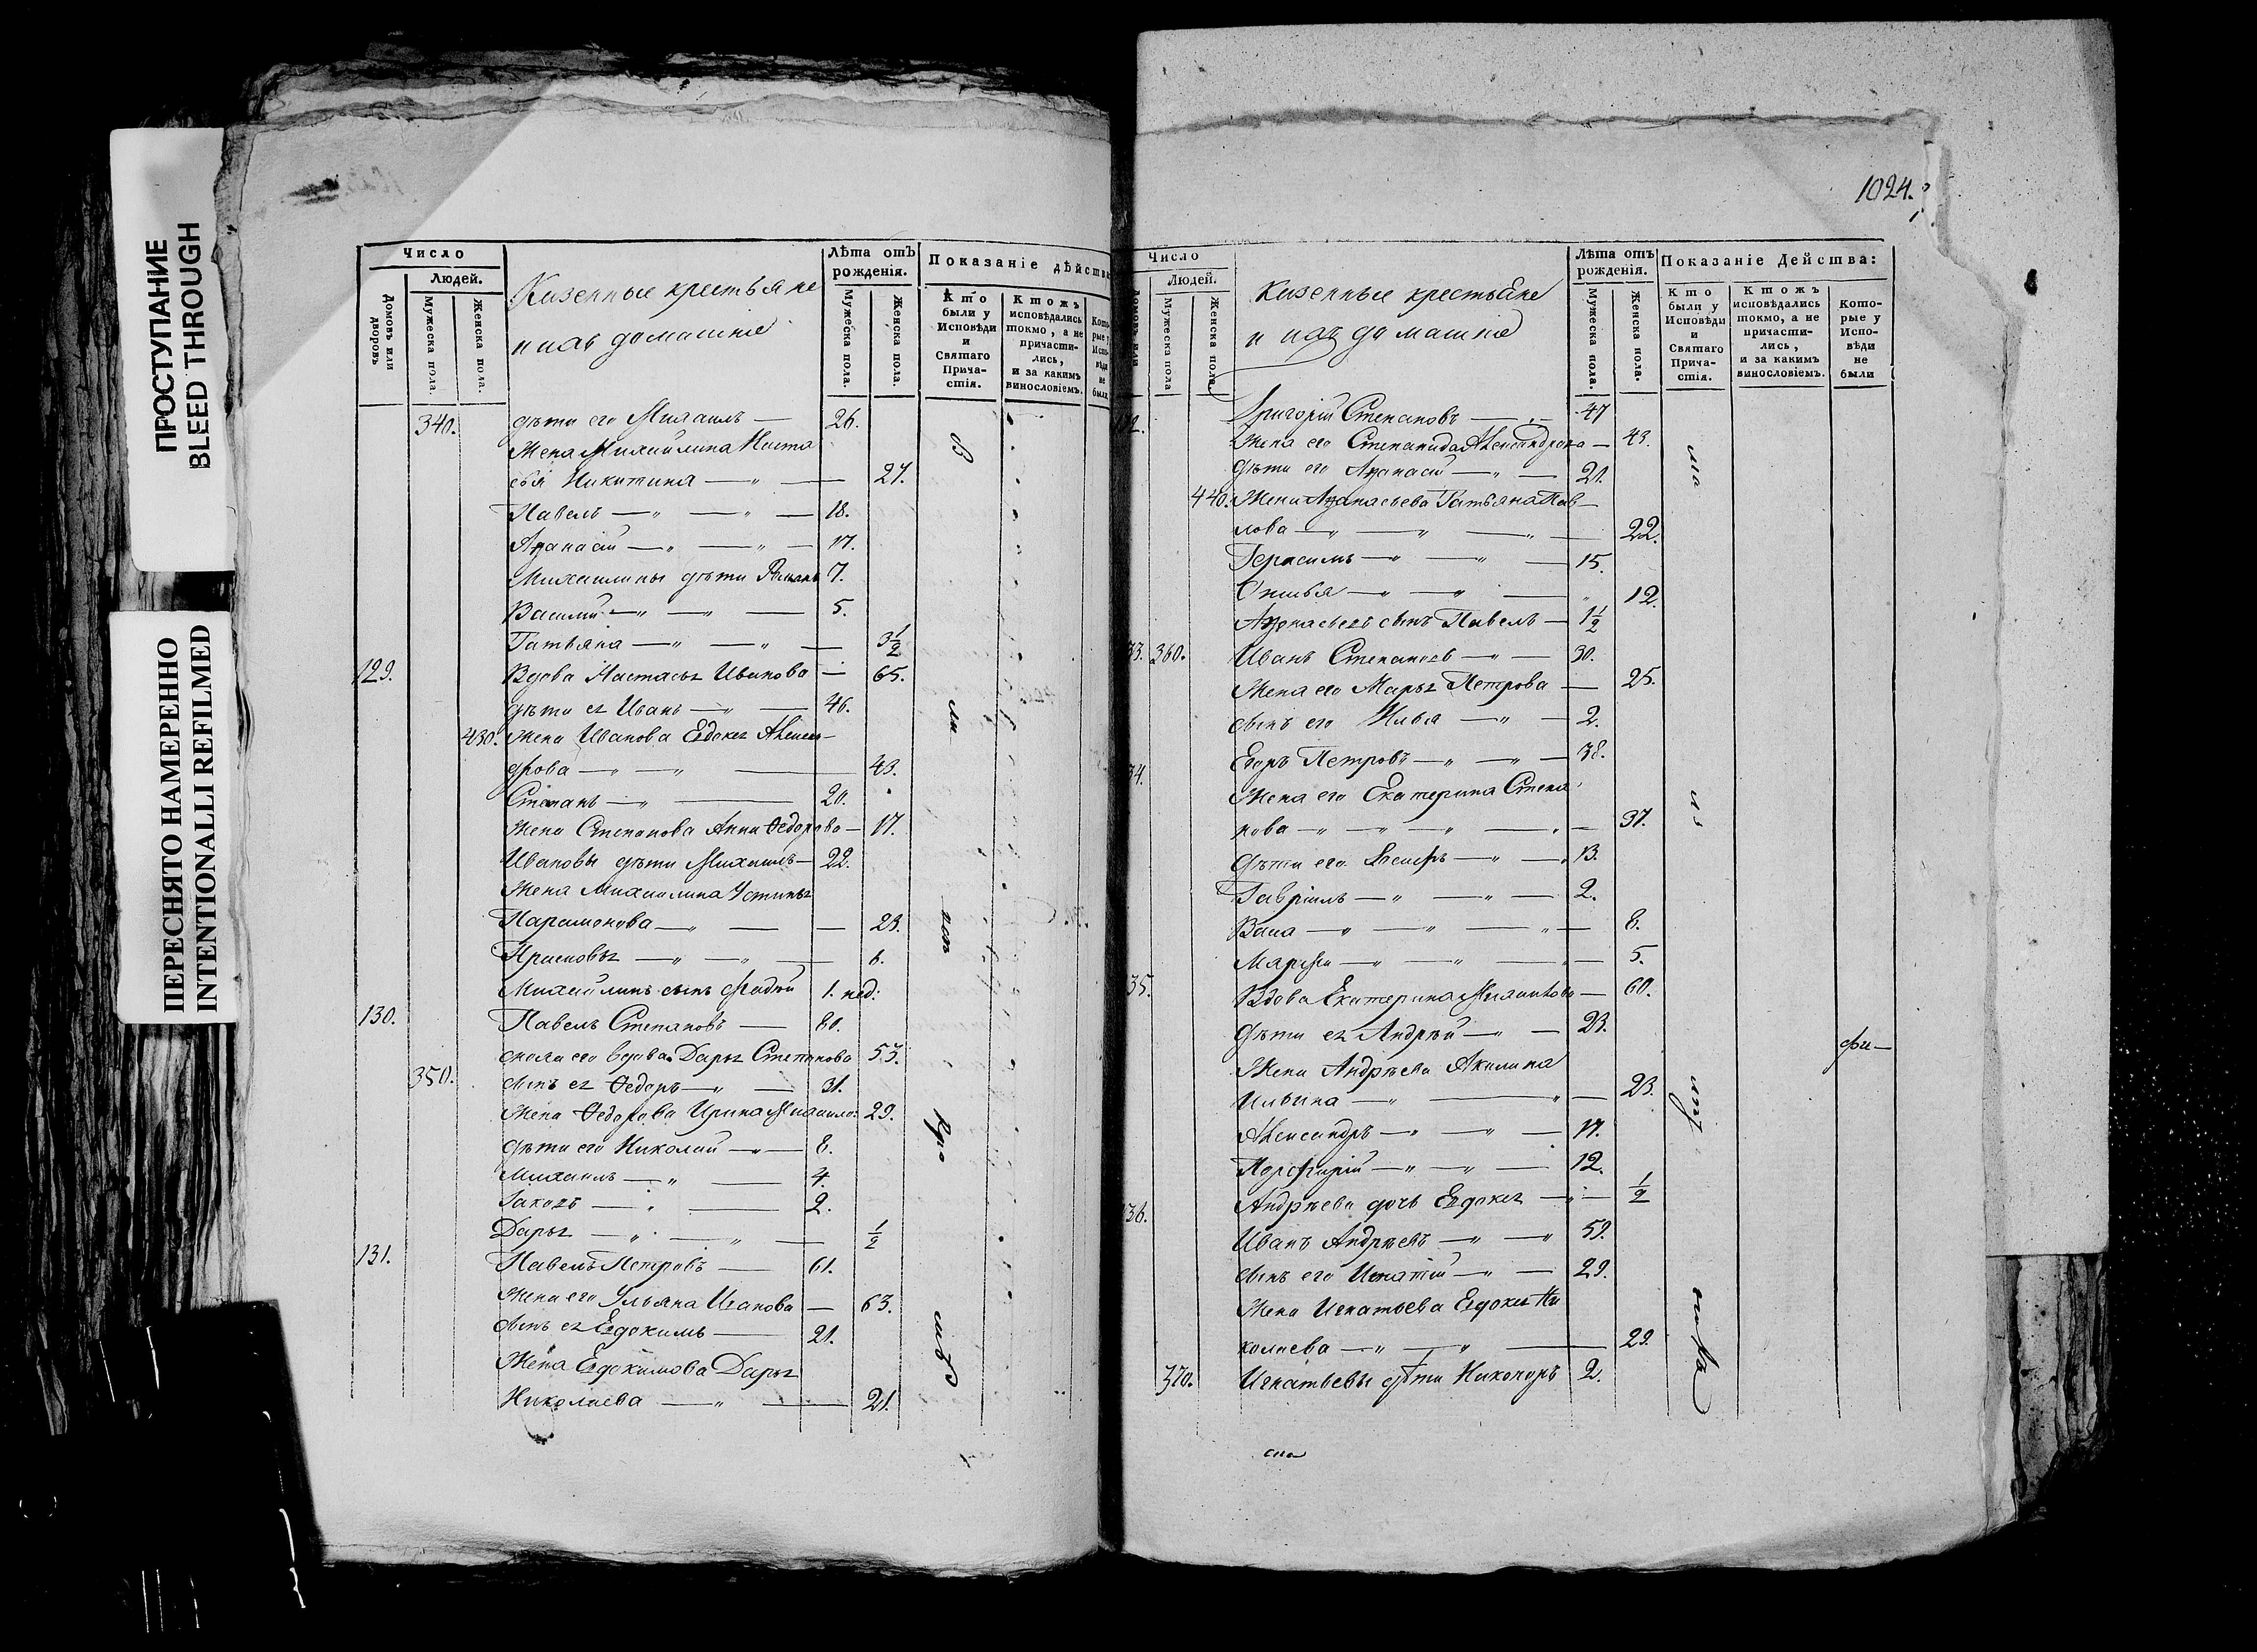 ПРОСТУПАНИЕ
BLEED THROUGH
ПЕРЕСНЯТО НАМЕРЕННО
INTENTIONALLI REFILMED
Число
Людей.
Домовъ или дворовъ
Мужеска пола.
Женска пола.
Казенные крестьяне
и ихъ домашніе
Лѣта отъ рожденія.
Мужеска пола.
Женска пола.
Показаніе дѣйств
Кто были у Исповѣди и Святаго Прича-стія.
Ктожъ исповѣдались токмо, а не причасти-лись, и за какимъ винословіемъ.
340. дѣти его Михаилъ — 26.
Жена Михайлина Наста
сья Никитина — 27.
Павелъ — 18.
Аѳанасій — 17.
Михаилины дѣти Романъ 7.
Василій — 5.
Татьяна — 3 1/2
129. Вдова Настасья Иванова — 65.
дѣти ея Иванъ — 46.
430. Жена Иванова Евдокея Алексан-
дрова — 43.
Степанъ — 20.
Жена Степанова Анна Ѳедорова — 17.
Ивановы дѣти Михаилъ — 22.
Жена Михаилина Устинья
Парамонова — 23.
6.
Михайлинъ сынъ Фадѣй 1. нед:
130. Павелъ Степановъ — 80.
сноха его вдова Дарья Степанова 53.
350. сынъ ея Ѳедоръ — 31.
Жена Ѳедорова Ирина Михаило: 29.
дѣти его Николай — 8.
Михаилъ — 4.
Іаковъ — 2.
Дарья — 1/2
131. Павелъ Петровъ — 61.
Жена его Ульяна Иванова — 63.
сынъ ея Евдокимъ — 21.
Жена Евдокимова Дарья
Николаева — 21.
1024.
Число
Людей.
Мужеска пола
Женска пола.
Казенные крестьяне
и ихъ домашніе
Лѣта отъ рожденія.
Мужеска пола.
Женска пола.
Показаніе Действа:
Кто были у Исповѣди и Святаго Прича-стія.
Ктожъ исповѣдались токмо, а не причасти-лись, и за какимъ винословіемъ.
Кото-рые у Испо-вѣди не были
Григорій Степановъ — 47
Жена его Степанида Александрова — 43.
Дѣти его Аѳанасій — 21.
440. Жена Аѳанасьева Татьяна Пав-
лова — 22.
Герасимъ — 15.
12.
Аѳанасьевъ сынъ Павелъ — 1 1/2
33. 360. Иванъ Степановъ — 30.
Жена его Марья Петрова — 25.
сынъ его Илья — 2.
34. Егоръ Петровъ — 38.
Жена его Екатерина Степа
нова — 37.
Дѣти его Іосифъ — 13.
Гавріилъ — 2.
Васа — 8.
Марфа — 5.
35. Вдова Екатерина Михайлова — 60.
Дѣти ея Андрѣй — 23.
Жена Андрѣева Акилина
Ильина — 23.
Александръ — 17.
Порфирій — 12.
Андрѣева дочь Евдокея — 1/2
36. Иванъ Андрѣевъ — 59.
сынъ его Игнатій — 29.
Жена Игнатьева Евдокея Ни
колаева — 29.
370. Игнатьевы дѣти Никоноръ 2.